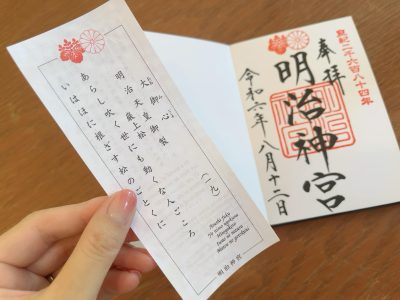 大御心
明治天皇御製
巌上松
(一九)
あらし吹く世にも動くな人ごころ
いはほに根ざす松のごとくに
Arashi fuku
Yo nimo ugokuna
Hitogokoro
Iwao ni nezasu
Matsu no gotokuni
明治神宮
皇紀二千六百八十四年
奉拝
明治神宮
令和六年八月十二日